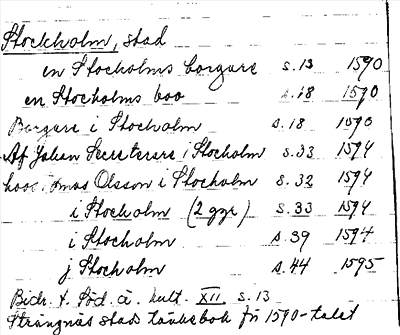 Stockholm, stad
en Stocholms borgare s.13 1590
en Stocholms boo s.18 1590
Borgare i Stocholm s.18 1590
Af Johan Secreterare i Stocholm s.33 1594
hoos Olsson i Stocholm s.32 1594
i Stocholm (2 ggr) s.33 1594
i Stocholm s.39 1594
j Stocholm s.44 1595
Bidr. t. Söd. ä. kult. XII s.13
Strängnäs stads tänkebok fr 1590-talet